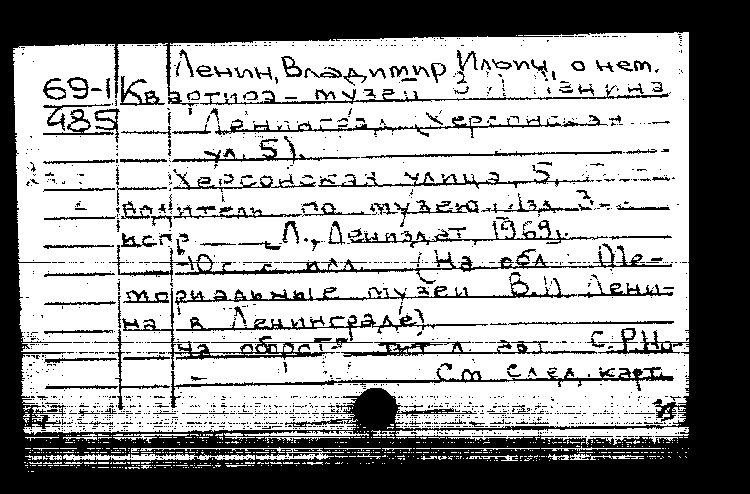 Ленин, Владимир Ильич, о нем.
69-1 Квартира-музей В И Ленина
485 Ленинград (Херсонская
ул. 5).
Херсонская улица, 5,
водитель по музею. Изд 3-
испр Л., Лениздат, 1969.
40 с с илл. (На обл: Ме-
мориальные музеи В.И Лени-
на в Ленинграде).
на обороте тит л авт С.Р.
См след. карт.